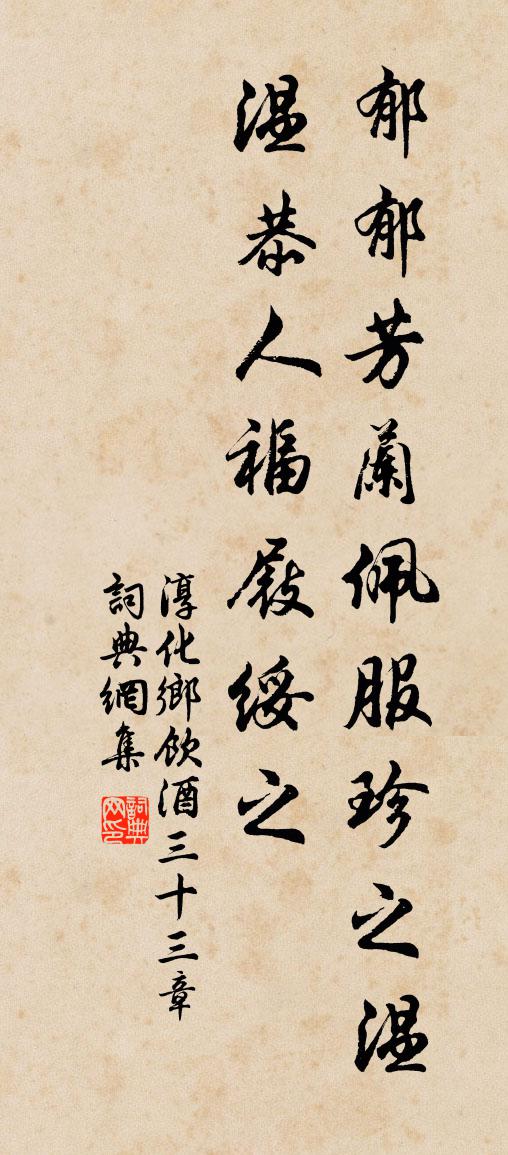 郁郁芳蘭佩服珍之温
温恭人福履綏之
淳化鄉飲酒三十三章
詞典網集
詞典网印